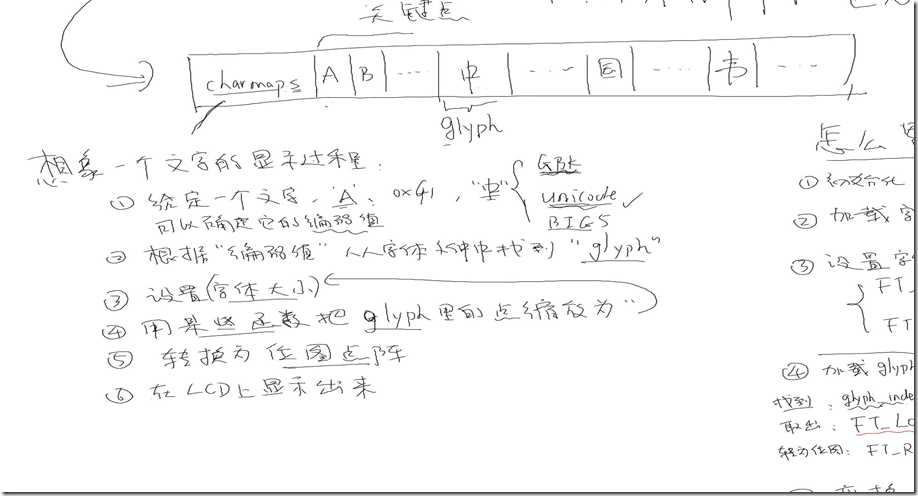 关键点
charmaps A B ...... 中 ...... 国 ...... 韦 ......
glyph
想象一个文字的显示过程:
① 给定一个文字, 'A', 0x41, "中" { GBK
unicode ✓
BIG5
可以确定它的编码值
② 根据"编码值"从字体文件中找到"glyph"
③ 设置(字体大小)
④ 用某些函数把glyph里的点缩放为"
⑤ 转换为位图点阵
⑥ 在LCD上显示出来
怎么
① 初始化
② 加载字
③ 设置字
{ FT_
FT
④ 加载glyph
找到: glyph_inde
取出: FT_Lo
转为位图: FT_R